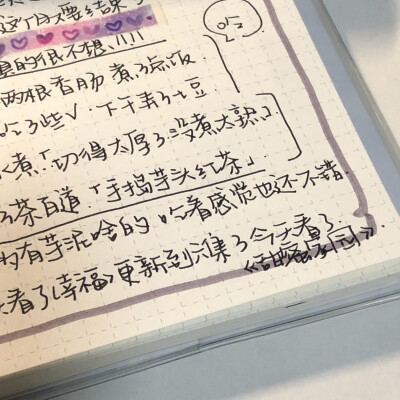 这个月又要结束了
真的很不想!!!!
吃
两根香肠 煮了点饭
吃了些√. 下午弄了土豆
煮「切得太厚了没煮太熟」
茶百道「手捣芋头红茶」
的有芋泥啥的 吃着感觉也还不错.
看了《幸福》更新到集了今天看了